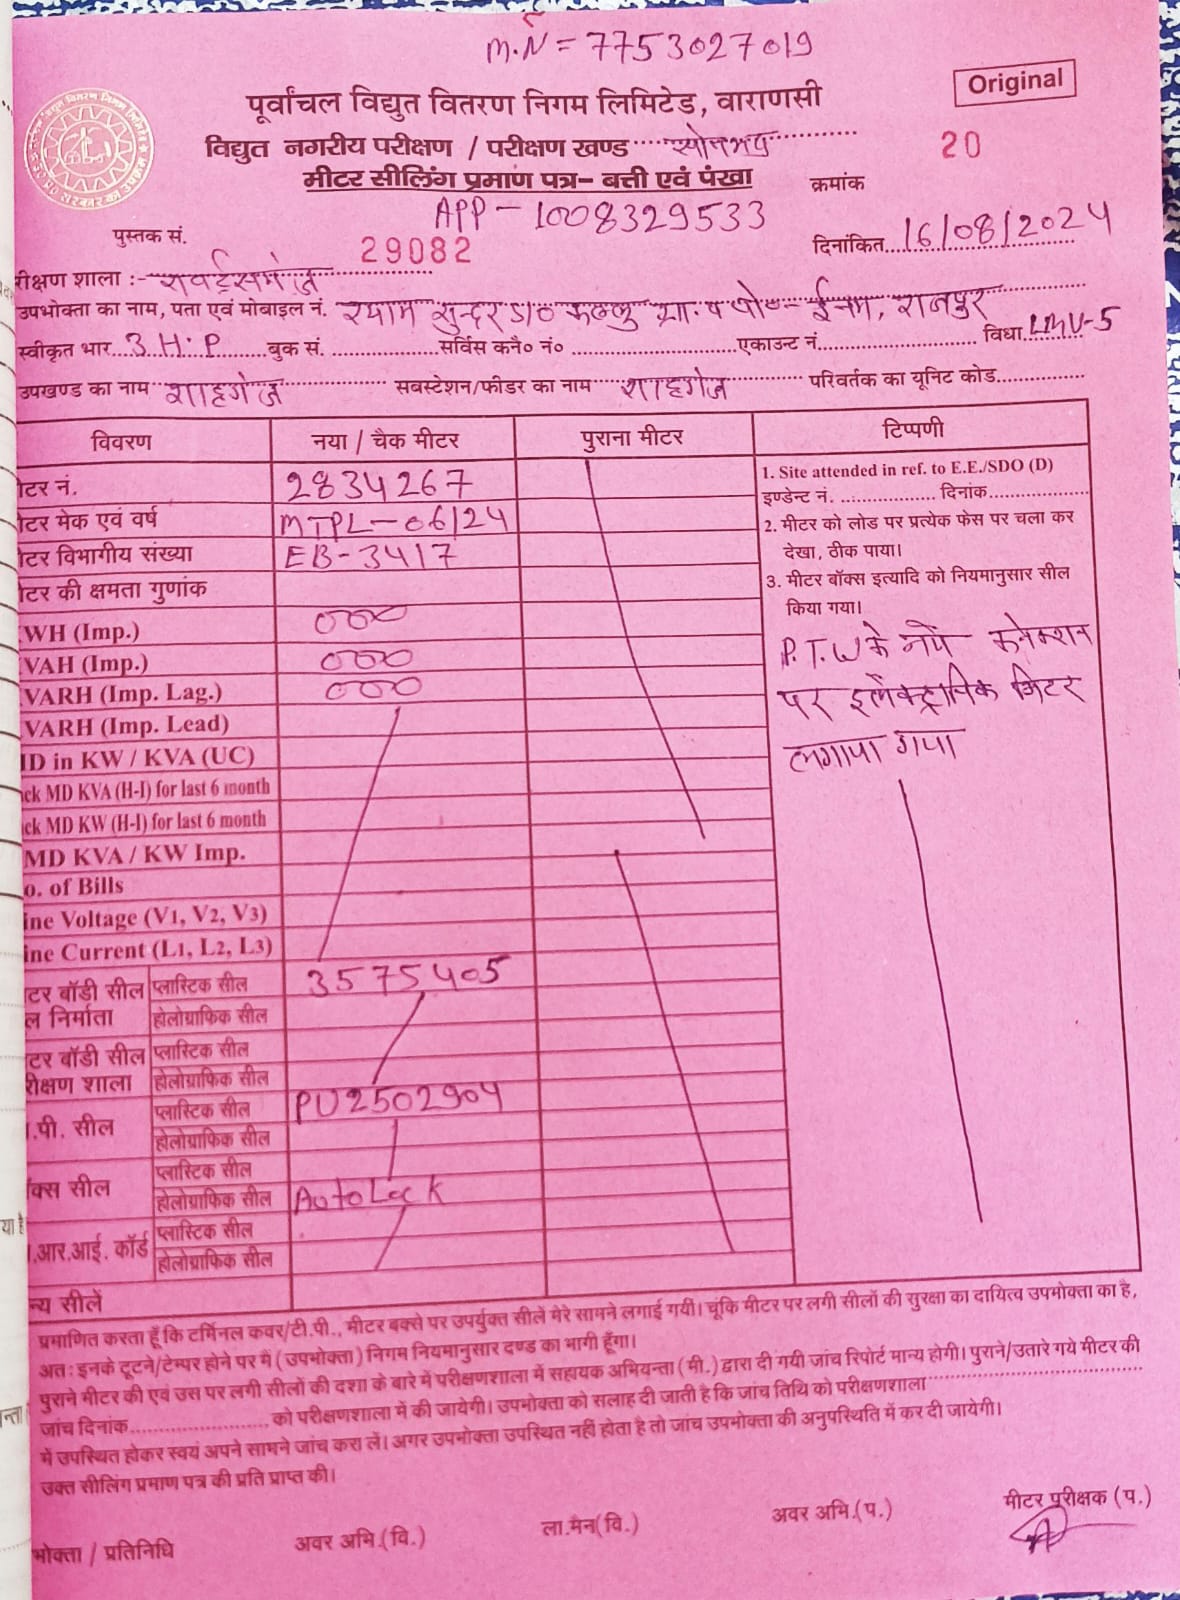 M.N = 7753027019
Original
पूर्वांचल विद्युत वितरण निगम लिमिटेड, वाराणसी
विद्युत नगरीय परीक्षण / परीक्षण खण्ड सोनभद्र
20
मीटर सीलिंग प्रमाण पत्र- बत्ती एवं पंखा
क्रमांक
APP - 1008329533
पुस्तक सं. 29082
दिनांकित 16/08/2024
रीक्षण शाला :- रावर्ट्सगंज
उपभोक्ता का नाम, पता एवं मोबाइल नं. श्याम सुन्दर S/o कल्लु ग्रा. व पो०- ईनम, राजपुर
स्वीकृत भार 3 H.P बुक सं. सर्विस कनै० नं० एकाउन्ट नं. विधा LMV-5
उपखण्ड का नाम शाहगंज सबस्टेशन/फीडर का नाम शाहगंज परिवर्तक का यूनिट कोड
विवरण नया / चैक मीटर पुराना मीटर टिप्पणी
टर नं. 2834267
टर मेक एवं वर्ष MTPL-06/24
टर विभागीय संख्या EB-3417
टर की क्षमता गुणांक
WH (Imp.) 000
VAH (Imp.) 000
VARH (Imp. Lag.) 000
VARH (Imp. Lead)
D in KW / KVA (UC)
ck MD KVA (H-I) for last 6 month
ck MD KW (H-I) for last 6 month
MD KVA / KW Imp.
o. of Bills
ine Voltage (V1, V2, V3)
ine Current (L1, L2, L3)
1. Site attended in ref. to E.E./SDO (D)
इण्डेन्ट नं. दिनांक
2. मीटर को लोड पर प्रत्येक फेस पर चला कर
देखा, ठीक पाया।
3. मीटर बॉक्स इत्यादि को नियमानुसार सील
किया गया।
P.T.W के नये कनेक्शन
पर इलेक्ट्रानिक मिटर
लगाया गया
टर बॉडी सील प्लास्टिक सील 3575405
ल निर्माता होलोग्राफिक सील
टर बॉडी सील प्लास्टिक सील
रीक्षण शाला होलोग्राफिक सील
.पी. सील प्लास्टिक सील PU2502904
होलोग्राफिक सील
क्स सील प्लास्टिक सील
होलोग्राफिक सील AutoLock
.आर.आई. कॉर्ड प्लास्टिक सील
होलोग्राफिक सील
न्य सीलें
प्रमाणित करता हूँ कि टर्मिनल कवर/टी.पी., मीटर बक्से पर उपर्युक्त सीलें मेरे सामने लगाई गयीं। चूंकि मीटर पर लगी सीलों की सुरक्षा का दायित्व उपभोक्ता का है,
अत: इनके टूटने/टेम्पर होने पर मैं (उपभोक्ता) निगम नियमानुसार दण्ड का भागी हूँगा।
पुराने मीटर की एवं उस पर लगी सीलों की दशा के बारे में परीक्षणशाला में सहायक अभियन्ता (मी.) द्वारा दी गयी जांच रिपोर्ट मान्य होगी। पुराने/उतारे गये मीटर की
जांच दिनांक को परीक्षणशाला में की जायेगी। उपभोक्ता को सलाह दी जाती है कि जांच तिथि को परीक्षणशाला
में उपस्थित होकर स्वयं अपने सामने जांच करा लें। अगर उपभोक्ता उपस्थित नहीं होता है तो जांच उपभोक्ता की अनुपस्थिति में कर दी जायेगी।
उक्त सीलिंग प्रमाण पत्र की प्रति प्राप्त की।
भोक्ता / प्रतिनिधि अवर अभि.(वि.) ला.मैन(वि.) अवर अभि.(प.) मीटर परीक्षक (प.)